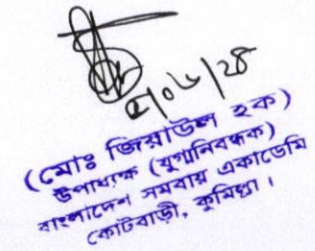 ৫/০৬/২৪
(মোঃ জিয়াউল হক)
উপাধ্যক্ষ (যুগ্মনিবন্ধক)
বাংলাদেশ সমবায় একাডেমি
কোটবাড়ী, কুমিল্লা।